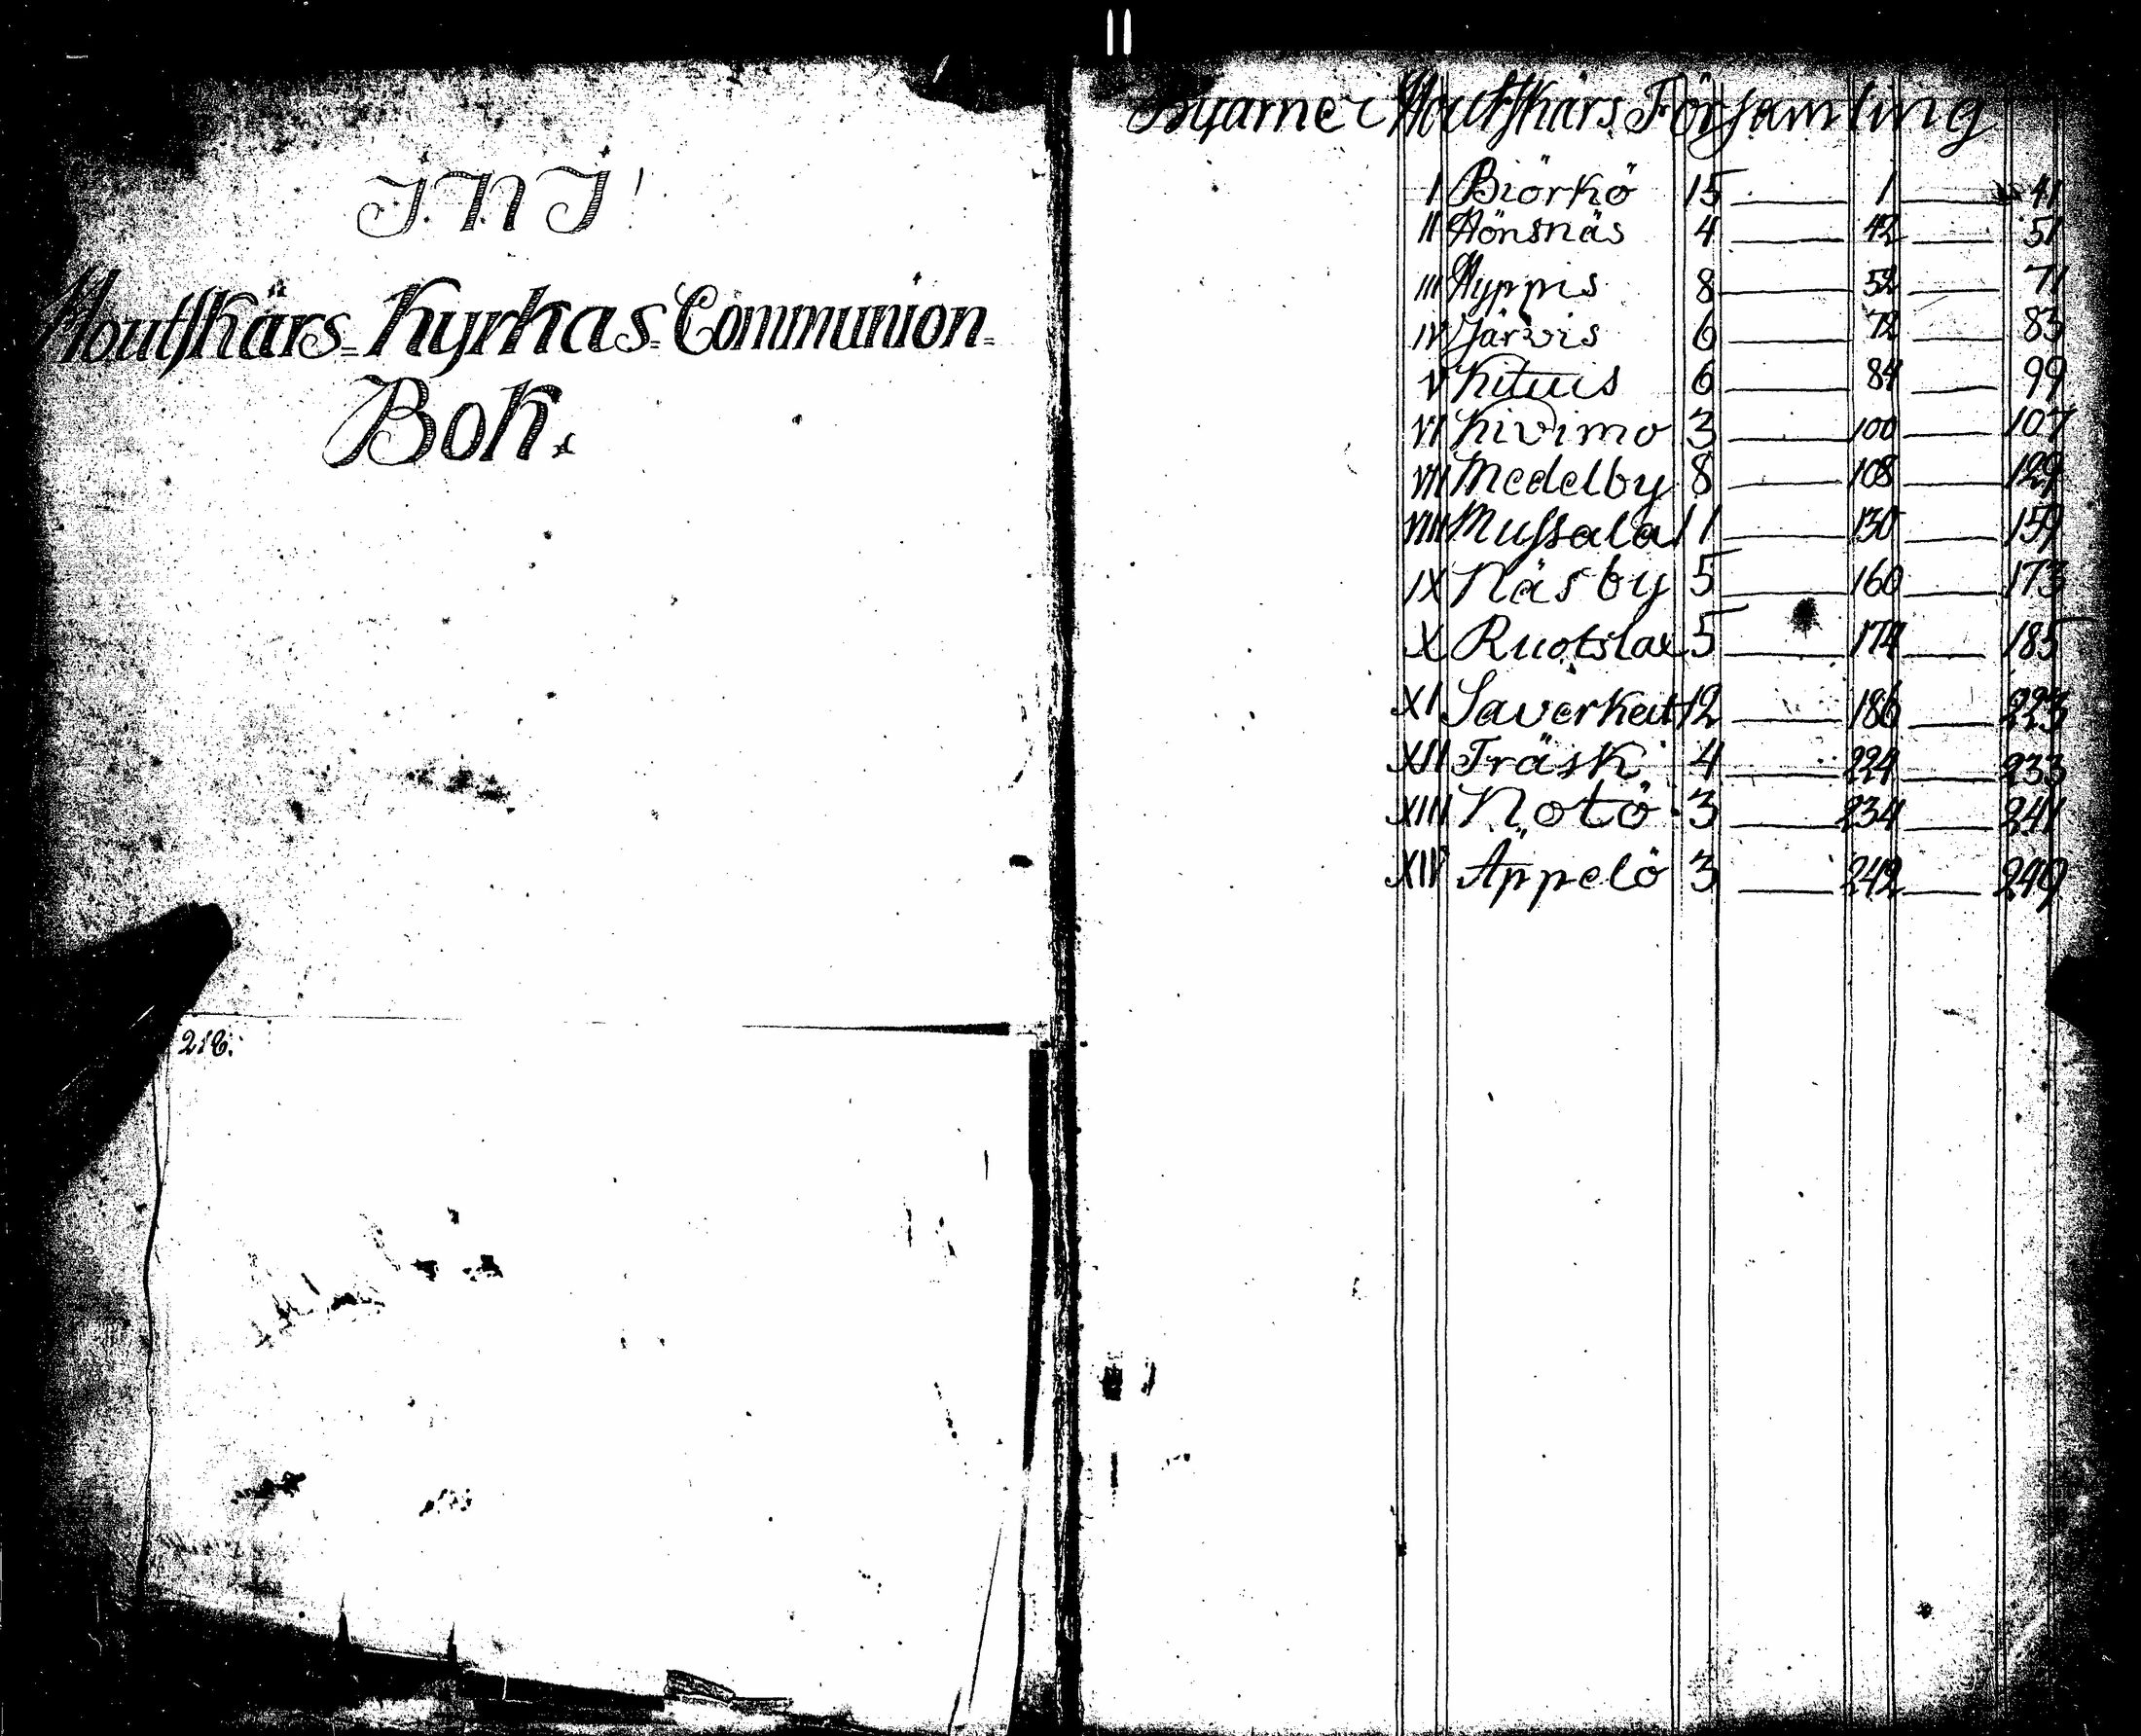 J. N J!
Houtskärs Kyrkas Communion
Bok.
218.
Byarne i Houtskärs Församling
I Biörkö 15 1 41
II Hönsnäs 4 42 51
III Hyppis 8 52 71
IV Järvis 6 72 83
V Kituis 6 84 99
VI Kivimo 3 100 107
VII Medelby 8 108 129
VIII Mussala 11 130 159
IX Näsby 5 160 173
X Ruotslax 5 174 185
XI Saverkeit 12 186 223
XII Träsk 4 224 233
XIII Notö 3 234 241
XIV Äppelö 3 242 249